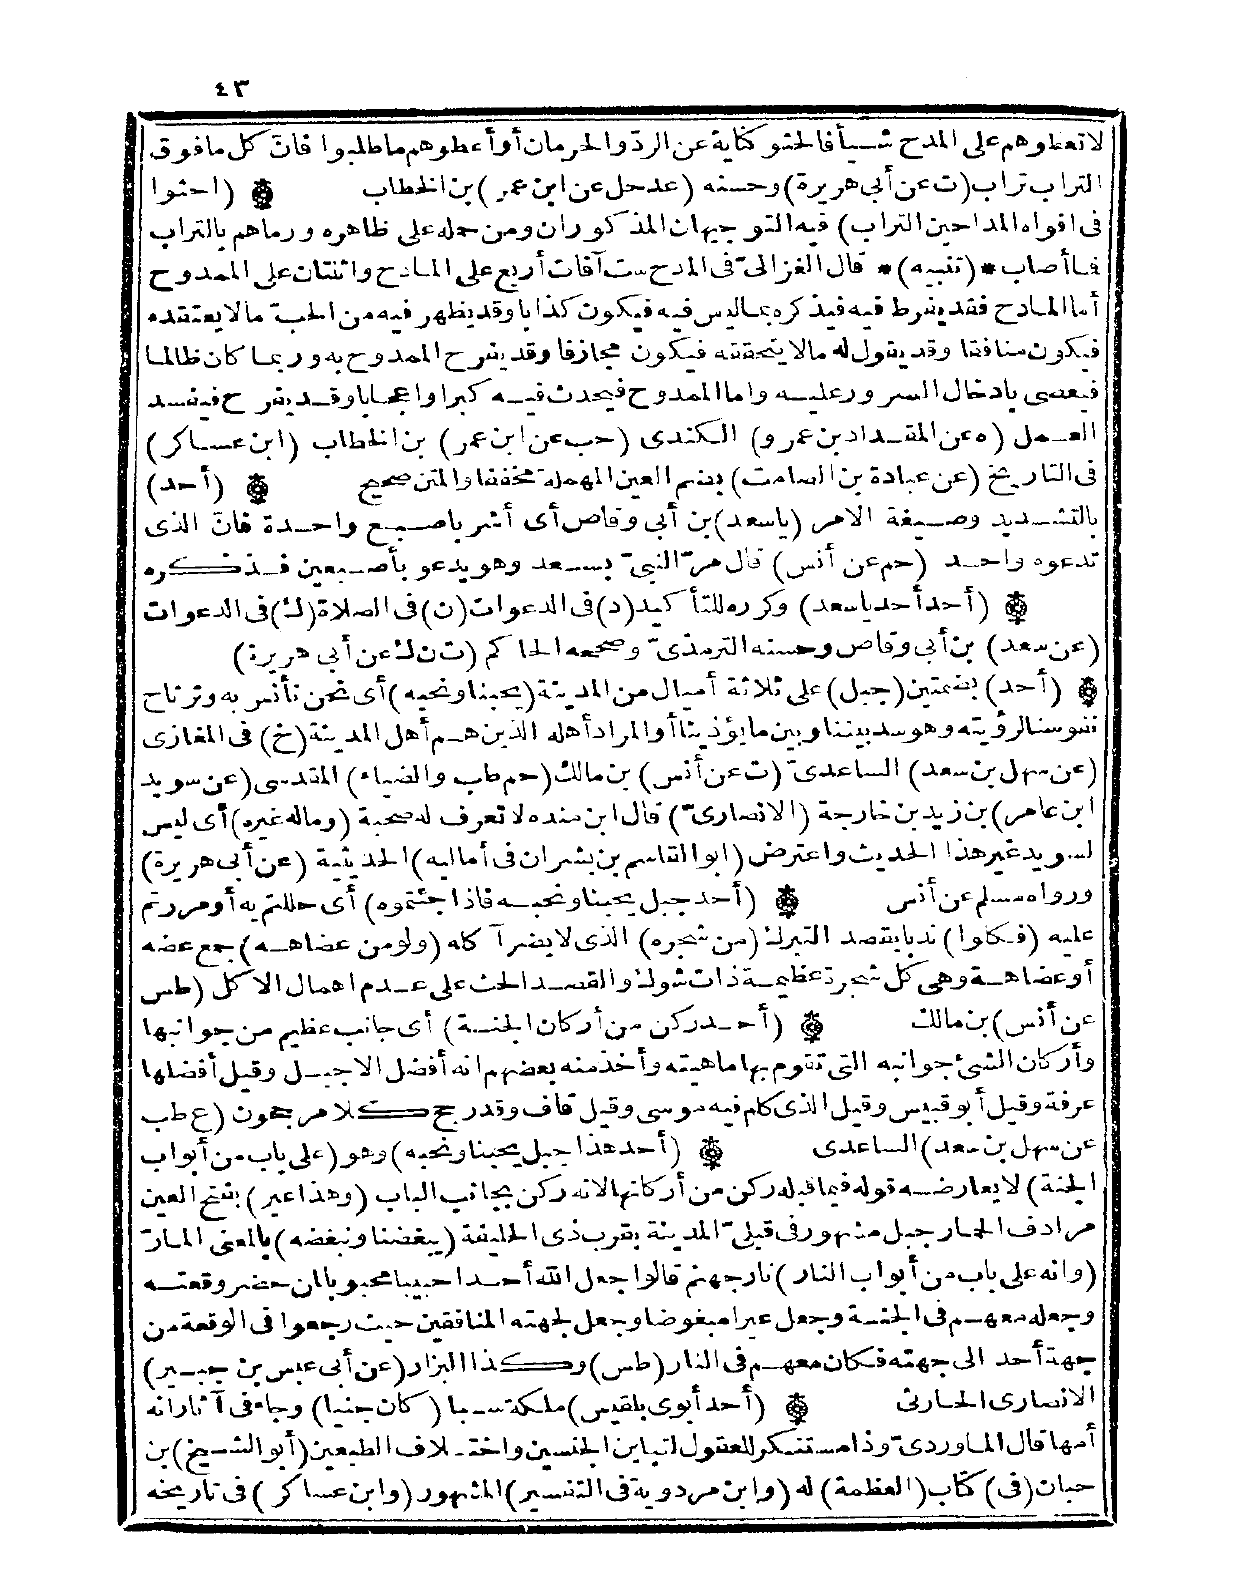 ٤٣
لا تعطوهم على المدح شيأ فالحثو كناية عن الردّ والحرمان أو أعطوهم ما طلبوا فانّ كل ما فوق
التراب تراب (ت عن أبى هريرة) وحسنه (عد حل عن ابن عمر) بن الخطاب ۞ (احثوا
فى افواه المداحين التراب) فيه التوجيهان المذكوران ومن حمله على ظاهره ورماهم بالتراب
فما أصاب * (تنبيه) * قال الغزالىّ فى المدح ست آفات أربع على المادح واثنتان على الممدوح
أما المادح فقد يفرط فيه فيذكره بما ليس فيه فيكون كذابا وقد يظهر فيه من الحبّ ما لا يعتقده
فيكون منافقا وقد يقول له ما لا يتحققه فيكون مجازفا وقد يفرح الممدوح به وربما كان ظالما
فيعصى بادخال السرور عليه واما الممدوح فيحدث فيه كبرا واعجابا وقد يفرح فيفسد
العمل (ه عن المقداد بن عمرو) الكندى (حب عن ابن عمر) بن الخطاب (ابن عساكر)
فى التاريخ (عن عبادة بن الصامت) بضم العين المهملة مخففا والمتن صحيح ۞ (أحد)
بالتشديد وصيغة الامر (ياسعد) بن أبى وقاص أى أشر باصبع واحدة فانّ الذى
تدعوه واحد (حم عن أنس) قال مرّ النبىّ بسعد وهو يدعو بأصبعين فذكره
۞ (أحد أحد ياسعد) وكرره للتأكيد (د) فى الدعوات (ن) فى الصلاة (ك) فى الدعوات
(عن سعد) بن أبى وقاص وحسنه الترمذىّ وصححه الحاكم (ت ن ك عن أبى هريرة)
۞ (أحد) بضمتين (جبل) على ثلاثة أميال من المدينة (يحبنا ونحبه) أى نحن نأنس به وترتاح
نفوسنا لرؤيته وهو سد بيننا وبين ما يؤذينا أو المراد أهله الذين هم أهل المدينة (خ) فى المغازى
(عن سهل بن سعد) الساعدىّ (ت عن أنس) بن مالك (حم طب والضياء) المقدسى (عن سويد
ابن عامر) بن زيد بن خارجة (الانصارىّ) قال ابن منده لا تعرف له صحبة (وماله غيره) أى ليس
لسويد غير هذا الحديث واعترض (ابو القاسم بن بشران فى أماليه) الحديثية (عن أبى هريرة)
ورواه مسلم عن أنس ۞ (أحد جبل يحبنا ونحبه فاذا جئتموه) أى حللتم به أو مررتم
عليه (فكلوا) ندبا بقصد التبرك (من شجره) الذى لا يضر آكله (ولو من عضاهه) جمع عضه
أو عضاهة وهى كل شجرة عظيمة ذات شوك والقصد الحث على عدم اهمال الاكل (طس
عن أنس) بن مالك ۞ (أحد ركن من أركان الجنة) أى جانب عظيم من جوانبها
وأركان الشئ جوانبه التى تقوم بها ماهيته وأخذ منه بعضهم انه أفضل الاجبل وقيل أفضلها
عرفة وقيل أبو قبيس وقيل الذى كلم فيه موسى وقيل قاف وقد رجح كلا مرجحون (ع طب
عن سهل بن سعد) الساعدى ۞ (أحد هذا جبل يحبنا ونحبه) وهو (على باب من أبواب
الجنة) لا يعارضه قوله فيما قبله ركن من أركانها لانه ركن بجانب الباب (وهذا عير) بفتح العين
مرادف الحمار جبل مشهور فى قبلىّ المدينة بقرب ذى الحليفة (يبغضنا ونبغضه) بالمعنى المارّ
(وانه على باب من أبواب النار) نار جهنم قالوا جعل الله أحدا حبيبا محبوبا لمن حضر وقعته
وجعله معهم فى الجنة وجعل عيرا مبغوضا وجعل لجهته المنافقين حيث رجعوا فى الوقعة من
جهة أحد الى جهته فكان معهم فى النار (طس) وكذا البزار (عن أبى عبس بن جبير)
الانصارى الحارثى ۞ (أحد أبوى بلقيس) ملكة سبا (كان جنيا) وجاء فى آثار انه
أمها قال الماوردىّ وذا مستنكر للعقول لتباين الجنسين واختلاف الطبعين (أبو الشيخ) بن
حبان (فى) كتاب (العظمة) له (وابن مردوية فى التفسير) المشهور (وابن عساكر) فى تاريخه